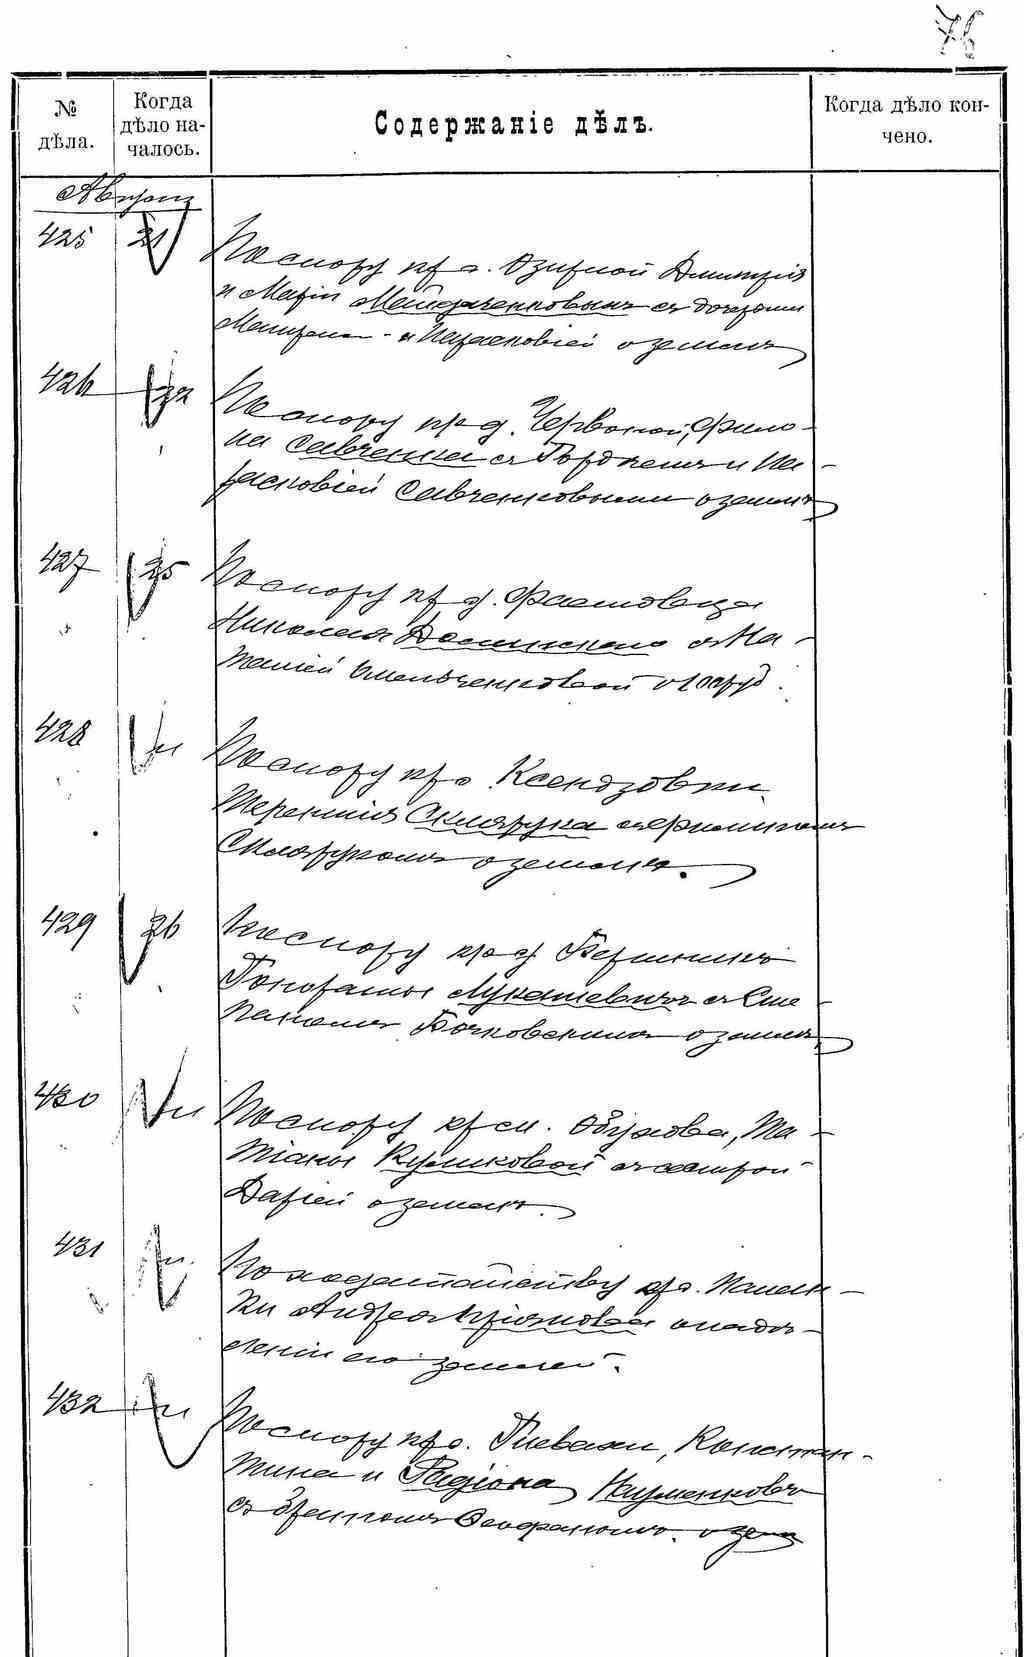 76
№ дѣла.
Когда дѣло на-чалось.
Содержаніе дѣлъ.
Когда дѣло кон-чено.
Августъ
425 21 По спору кр. с. Озирной Дмитрія
и Маріи съ дочерьми
и Парасковіей о землѣ
426 22 По спору кр. д. Червоной, Фило-
на Савченка съ Гордѣемъ и Па-
расковіей Савченковыми о землѣ
427 25 По спору кр. д. Фастовца
Николая съ На-
таліей Омельченковой о
428 " По спору кр. с. Ксендзовки
Терентія Склярука съ Филипомъ
Склярукомъ о землѣ.
429 26 По спору кр. д.
Гонораты Лукашевичъ съ Сте-
паномъ Бочковскимъ о землѣ
430 " По спору кр. см. Обухова, Та-
тіаны Куликовой съ сестрой
Даріей о землѣ.
431 " По ходатайству кр. с.
Андрея о надѣ-
леніи его землей.
432 " По спору кр. с. Плевахи, Констан-
тина и Радіона Науменковъ
съ братомъ Феофаномъ о земл